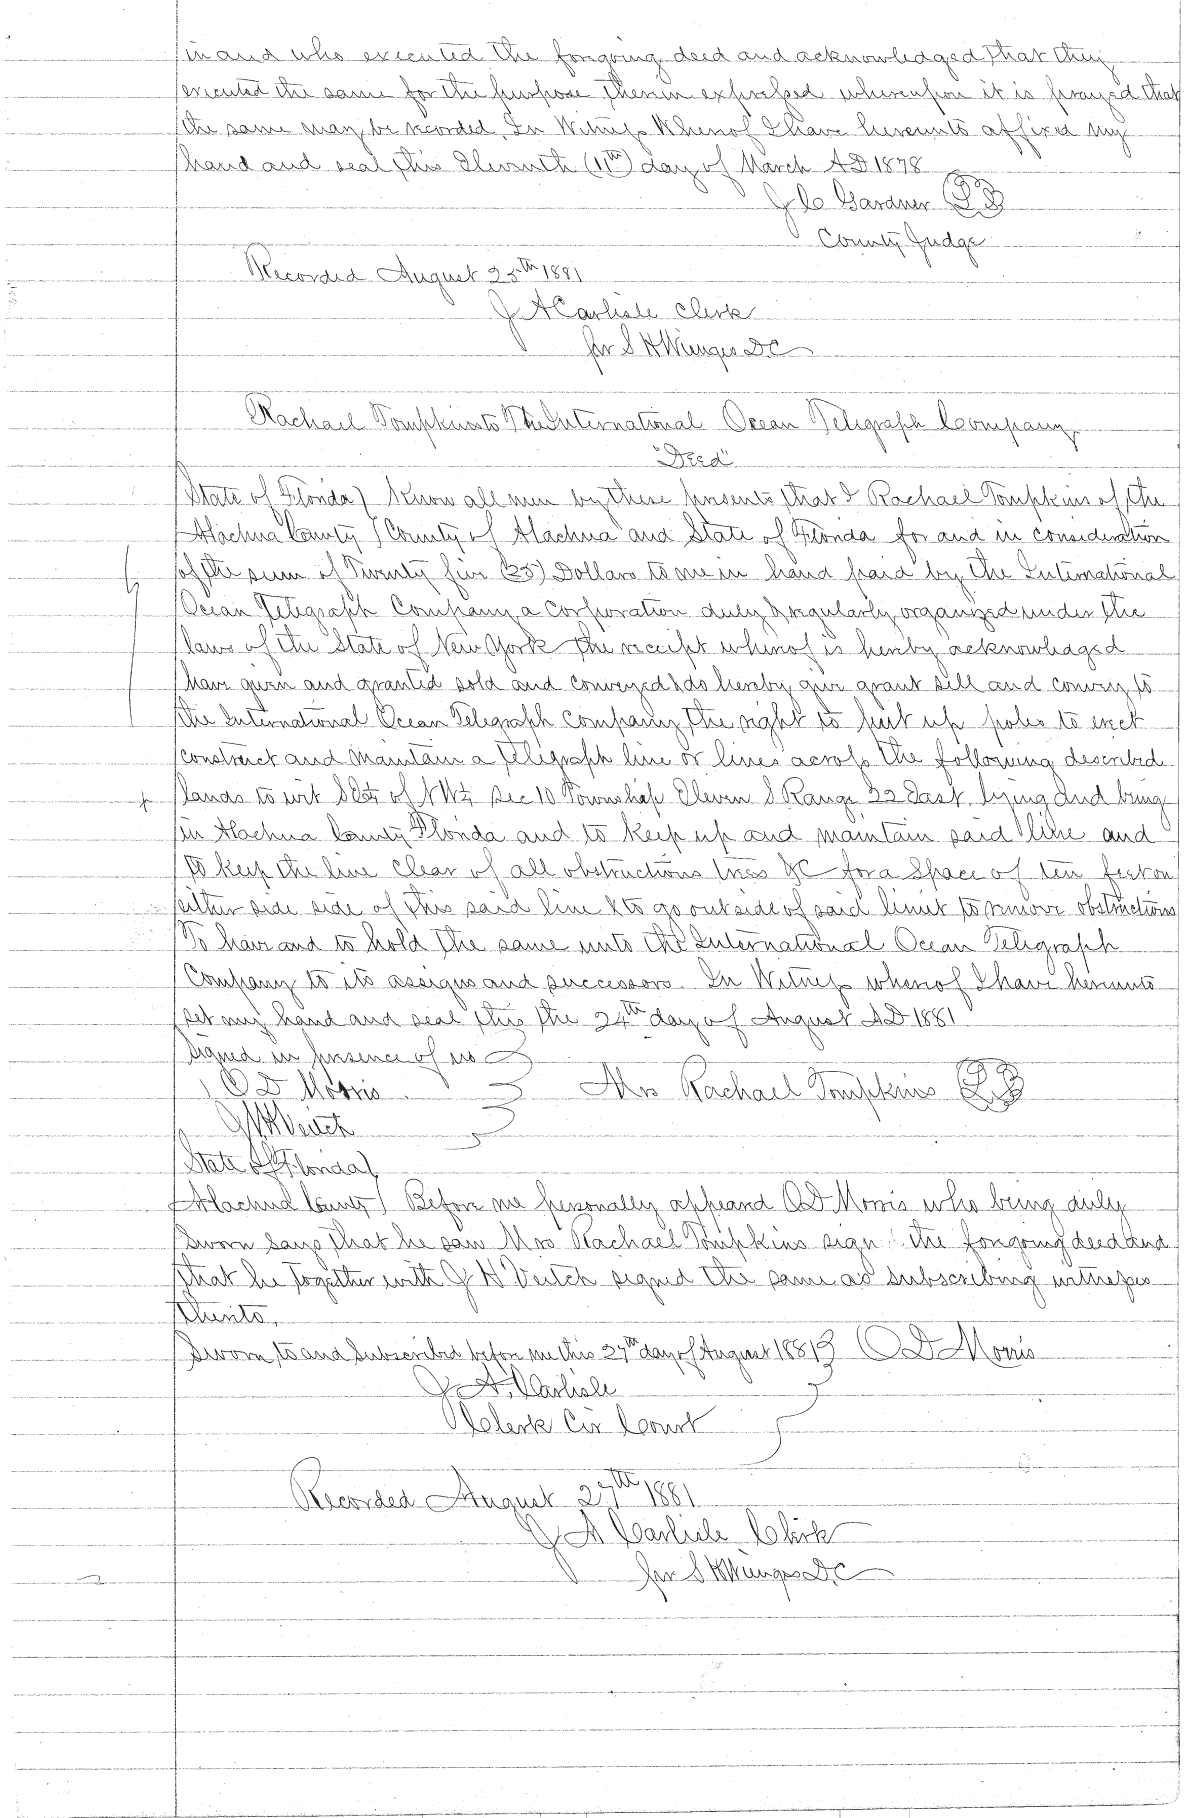 in and who executed the foregoing deed and acknowledged that they
executed the same for the purpose therein expressed whereupon it is prayed that
the same may be recorded, In Witness Whereof I have hereunto affixed my
hand and seal this Eleventh (11th) day of March AD 1878
J C Gardner
County Judge
Recorded August 25th 1881
J A Carlisle Clerk
for S H Wienges D.C
Rachael Tompkins to The International Ocean Telegraph Company
"Deed"
State of Florida) Know all men by these presents, that I Rachael Tompkins of the
Alachua County ) County of Alachua and State of Florida for and in consideration
of the sum of Twenty five (25) Dollars to me in hand paid by the International
Ocean Telegraph Company a Corporation duly & regularly organized under the
laws of the State of New York the receipt whereof is hereby acknowledged
have given and granted sold and conveyed & do hereby give grant sell and convey to
the International Ocean Telegraph Company, the right to put up poles to erect
construct and maintain a telegraph line or lines across the following described
lands to wit of NW¼ Sec 10 Township Eleven S Range 22 East. lying and being
in Alachua County Florida and to keep up and maintain said line and
to keep the line clear of all obstructions trees &C for a Space of ten feet on
either side side of this said line & to go outside of said limit to remove obstructions
To have and to hold the same unto the International Ocean Telegraph
Company to its assigns and successors. In Witness whereof I have hereunto
set my hand and seal this the 24th day of August AD 1881
Signed in presence of us
O D Morris Mrs Rachael Tompkins
J H Veitch
State of Florida)
Alachua County ) Before me personally appeared O D Morris who being duly
Sworn says that he saw Mrs Rachael Tompkins sign the foregoing deed and
that he together with J H Veitch signed the same as subscribing witnesses
thereto.
Sworn to and Subscribed before me this 27th day of August 1881 O D Morris
J A. Carlisle
Clerk Cir Court
Recorded August 27th 1881
J A Carlisle Clerk
for S H Wienges D.C